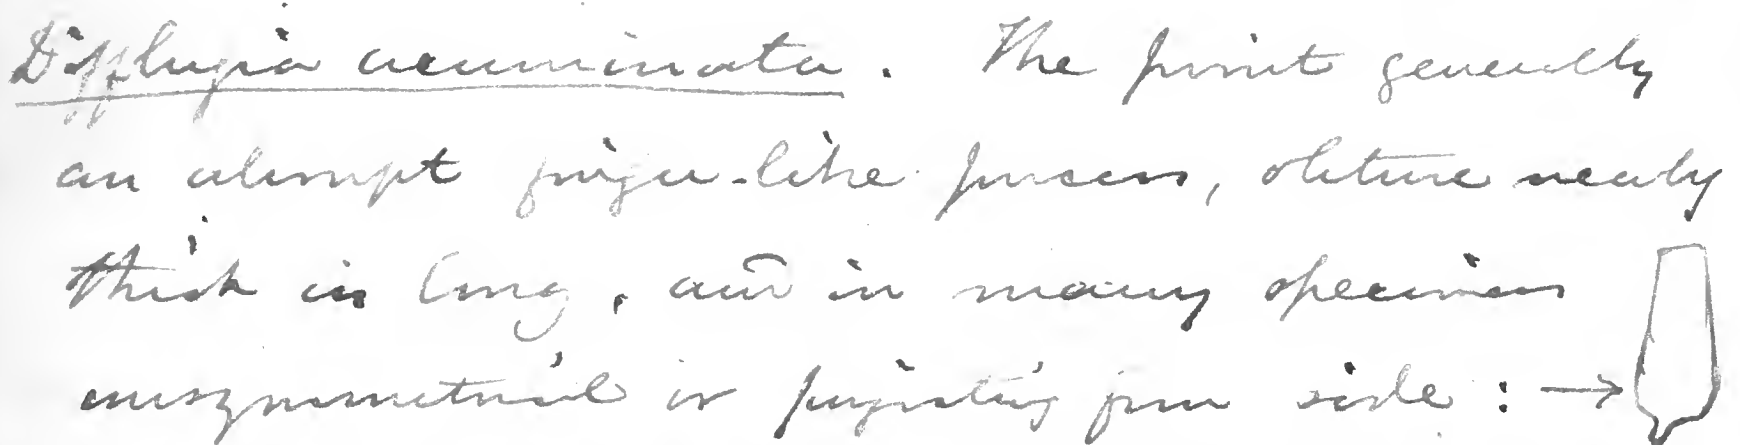 Difflugia acuminata. The point generally
an abrupt finger-like process, obtuse nearly
thick as long, and in many specimens
unsymmetrical or projecting from side : →